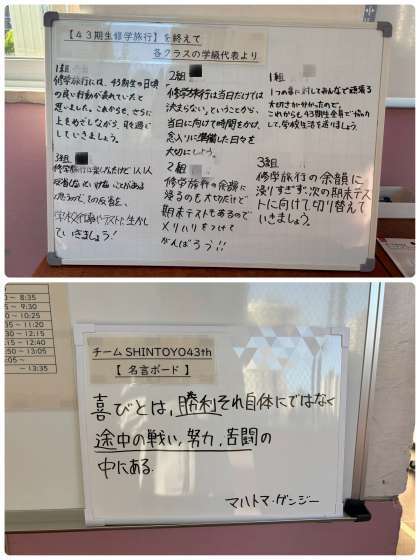 【43期生修学旅行】を終えて
各クラスの学級代表より
1組
修学旅行には、43期生の日頃
の良い行動が表れていたと
思いました。これからも、さらに
上をめざしながら、
していきましょう。
2組
「修学旅行は当日だけでは
決まらない」ということから、
当日に向けて時間をかけ、
念入りに準備した日々を
大切にしよう。
1組
1つの事に対してみんなで頑張る
大切さが分かったので、
これからも43期生全員で協力
して、学校生活を送りましょう。
3組
修学旅行は楽しんだけど、1人1人
反省しないといけないことがある
と思うので、その反省を、
学校行事やテストに生かし
ていきましょう！
2組
修学旅行の余韻に
浸るのも大切だけど
期末テストもあるので
メリハリをつけて
がんばろう!!
3組
修学旅行の余韻に
浸りすぎず、次の期末テス
トに向けて切り替えて
いきましょう。
～ 8:35
～ 9:30
～ 10:25
～ 11:20
～ 12:15
～ 12:40
～ 13:05
～ 13:35
チームSHINTOYO43th
【 名言ボード 】
喜びとは、勝利それ自体にではなく
途中の戦い、努力、苦闘の
中にある。
マハトマ・ガンジー